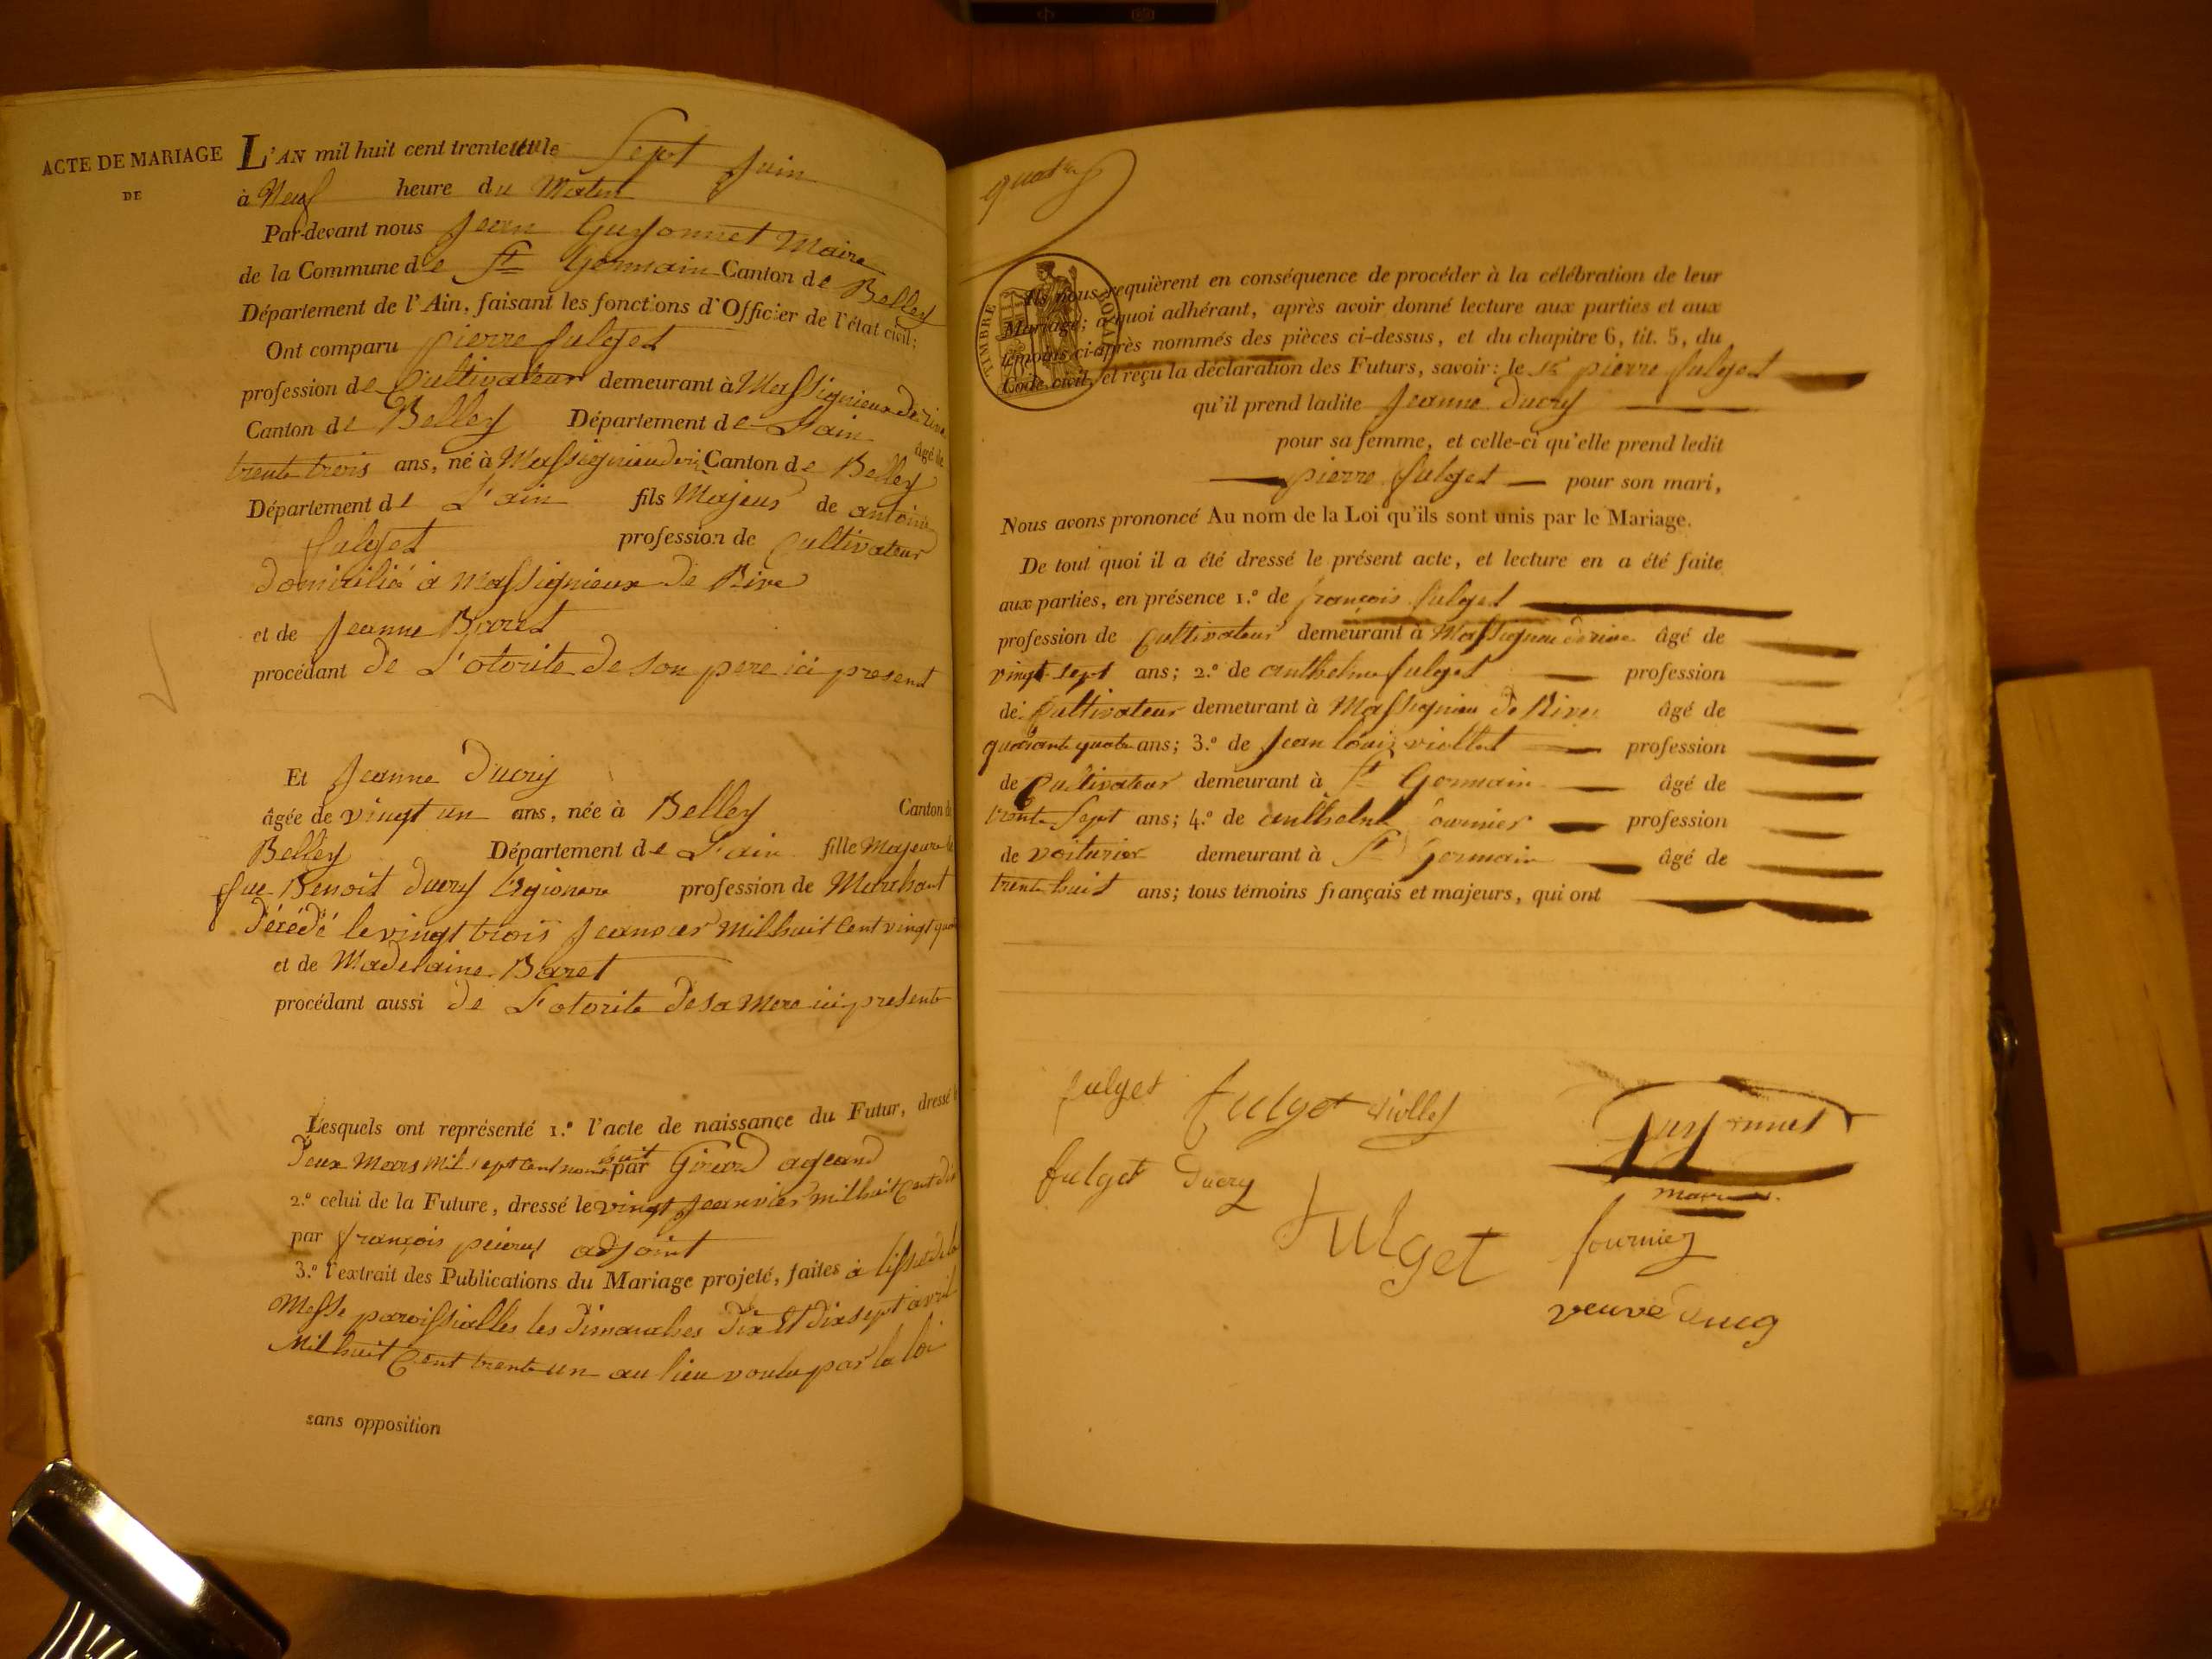 ACTE DE MARIAGE
DE
L'AN mil huit cent trente un le Sept Juin
à Neuf heure du Matin
Par-devant nous Jean Guyonnet Maire
de la Commune de St Germain Canton de Belley
Département de l'Ain, faisant les fonctions d'Officier de l'état civil;
Ont comparu pierre fulget
profession de Cultivateur demeurant à Massignieux de rive
Canton de Belley Département de L'ain âgé de
trente trois ans, né à Massignieu de ri Canton de Belley
Département de L'ain fils Majeur de antoine
fulget profession de Cultivateur
domicilié à Massignieux de Rive
et de Jeanne Barret
procédant de L'otorite de son pere ici present
Et Jeanne Ducry
âgée de vingt un ans, née à Belley Canton de
Belley Département de L'ain fille Majeure de
feu Benoit Ducry profession de Marchant
décédé le vingt trois Jeanvier mil huit Cent vingt
et de Madelaine Baret
procédant aussi de L'otorite de sa Mere ici presente
Lesquels ont représenté 1.º l'acte de naissance du Futur, dressé le
deux Mars Mil sept cent huit par
2.º celui de la Future, dressé le vingt Jeanvier mil huit Cent dix
par françois adjoint
3.º l'extrait des Publications du Mariage projeté, faites à de la
Messe paroissialles les dimanches dix Et dix sept avril
Mil huit Cent trente un au lieu voulu par la loi
sans opposition
TIMBRE ROYAL
Ils nous requièrent en conséquence de procéder à la célébration de leur
Mariage; à quoi adhérant, après avoir donné lecture aux parties et aux
témoins ci-après nommés des pièces ci-dessus, et du chapitre 6, tit. 5, du
Code civil, et reçu la déclaration des Futurs, savoir: le pierre fulget
qu'il prend ladite Jeanne Ducry
pour sa femme, et celle-ci qu'elle prend ledit
pierre fulget pour son mari,
Nous avons prononcé Au nom de la Loi qu'ils sont unis par le Mariage.
De tout quoi il a été dressé le présent acte, et lecture en a été faite
aux parties, en présence 1.º de françois fulget
profession de Cultivateur demeurant à Massignieu de rive âgé de
vingt sept ans; 2.º de anthelme fulget profession
de Cultivateur demeurant à Massignieu de Rive âgé de
quarante quatre ans; 3.º de Jean louis viollet profession
de Cultivateur demeurant à St Germain âgé de
trente Sept ans; 4.º de fournier profession
de voiturier demeurant à St Germain âgé de
trente huit ans; tous témoins français et majeurs, qui ont
fulget fulget viollet Guyonnet
fulget Ducry maire
fulget fournier
veuve